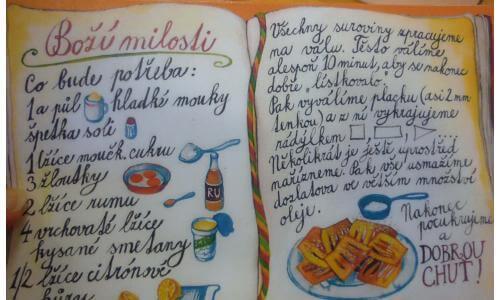 Boží milosti
Co bude potřeba:
1 a půl hladké mouky
špetka soli
1 lžíce moučk. cukru
3 žloutky
2 lžíce rumu
4 vrchovaté lžíce
kysané smetany
1/2 lžíce citrónové
kůry
RU
Všechny suroviny zpracujeme
na válu. Těsto válíme
alespoň 10 minut, aby se nakonec
dobře "lístkovalo".
Pak vyválíme placku (asi 2 mm
tenkou) a z ní vykrajujeme
rádýlkem ...
Několikrát je ještě uprostřed
nařízneme. Pak vše usmažíme
dozlatova ve větším množství
oleje.
Nakonec
pocukrujeme
a
DOBROU
CHUŤ!